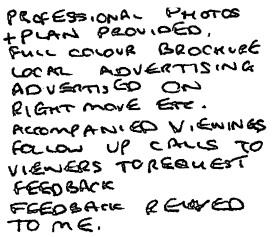 PROFESSIONAL PHOTOS
+ PLAN PROVIDED.
FULL COLOUR BROCHURE
LOCAL ADVERTISING
ADVERTISED ON
RIGHTMOVE ETC.
ACCOMPANIED VIEWINGS
FOLLOW UP CALLS TO
VIEWERS TO REQUEST
FEEDBACK
FEEDBACK RELAYED
TO ME.